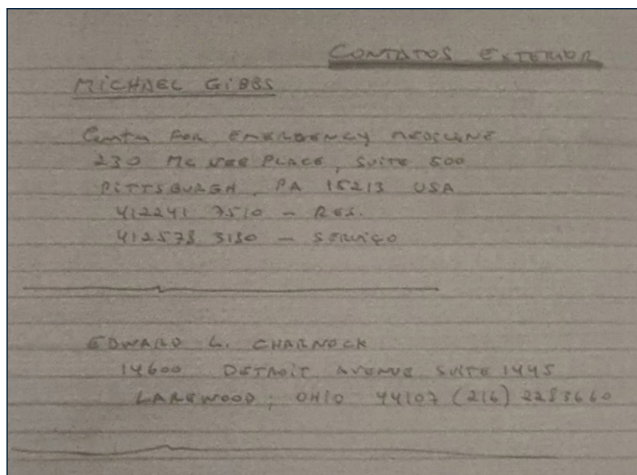 CONTATOS EXTERIOR
MICHAEL GIBBS
FOR EMERGENCY MEDICINE
230 MC KEE PLACE, SUITE 500
PITTSBURGH, PA 15213 USA
412241 3510 - RES.
412578 3180 - SERVIÇO
EDWARD L. CHARNOCK
14600 DETROIT AVENUE SUITE 1445
LAKEWOOD, OHIO 44107 (216) 2283660